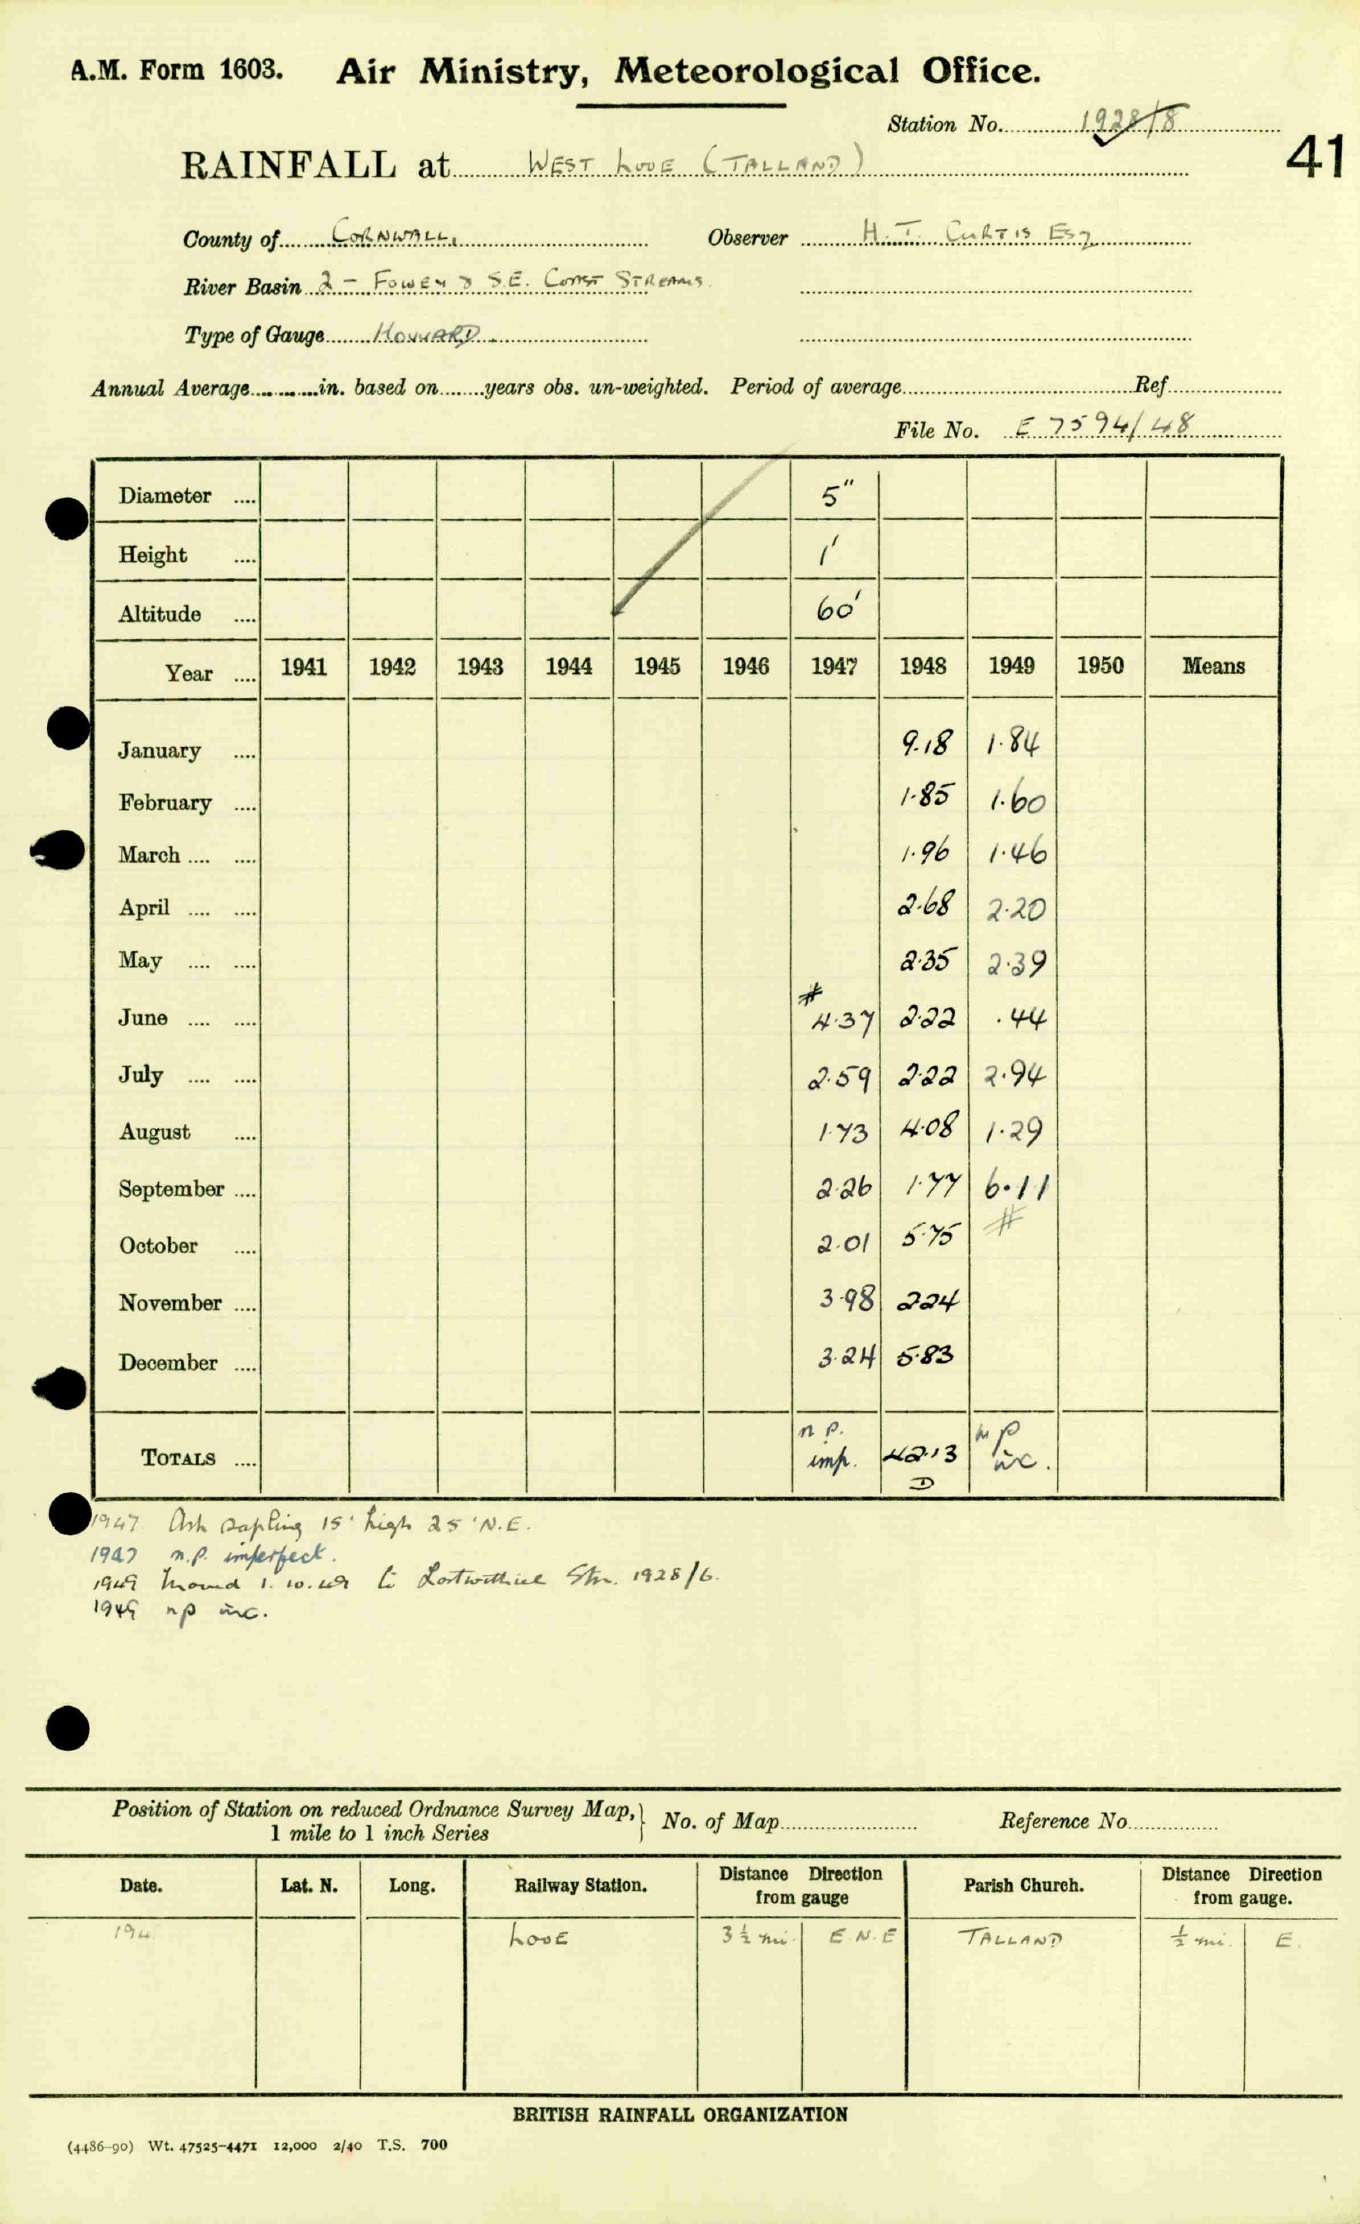 A.M. Form 1603. Air Ministry, Meteorological Office.
Station No. 1928/8
41
RAINFALL at WEST LOOE (TALLAND)
County of CORNWALL. Observer H. T. CURTIS ESQ
River Basin 2 - FOWEY & S.E. COAST STREAMS.
Type of Gauge HOWARD.
Annual Average in. based on years obs. un-weighted. Period of average Ref
File No. E 7594/48
Diameter .... 5"
Height .... 1'
Altitude .... 60'
Year .... 1941 1942 1943 1944 1945 1946 1947 1948 1949 1950 Means
January .... 9.18 1.84
February .... 1.85 1.60
March .... .... 1.96 1.46
April .... .... 2.68 2.20
May .... .... 2.35 2.39
#
June .... .... 4.37 2.22 .44
July .... .... 2.59 2.22 2.94
August .... 1.73 4.08 1.29
September .... 2.26 1.77 6.11
October .... 2.01 5.75 #
November .... 3.98 2.24
December .... 3.24 5.83
n.p. n p
TOTALS .... imp. 42.13 inc.
D
1947 Ash sapling 15' high 25' N.E.
1947 n.p. imperfect.
1949 Moved 1.10.49 to Lostwithiel Stn. 1928/6.
1949 n p inc.
Position of Station on reduced Ordnance Survey Map,} No. of Map Reference No
1 mile to 1 inch Series
Date. Lat. N. Long. Railway Station. Distance Direction Parish Church. Distance Direction
from gauge from gauge.
194 LOOE 3½ mi. E.N.E TALLAND ½ mi. E.
BRITISH RAINFALL ORGANIZATION
(4486-90) Wt. 47525-4471 12,000 2/40 T.S. 700